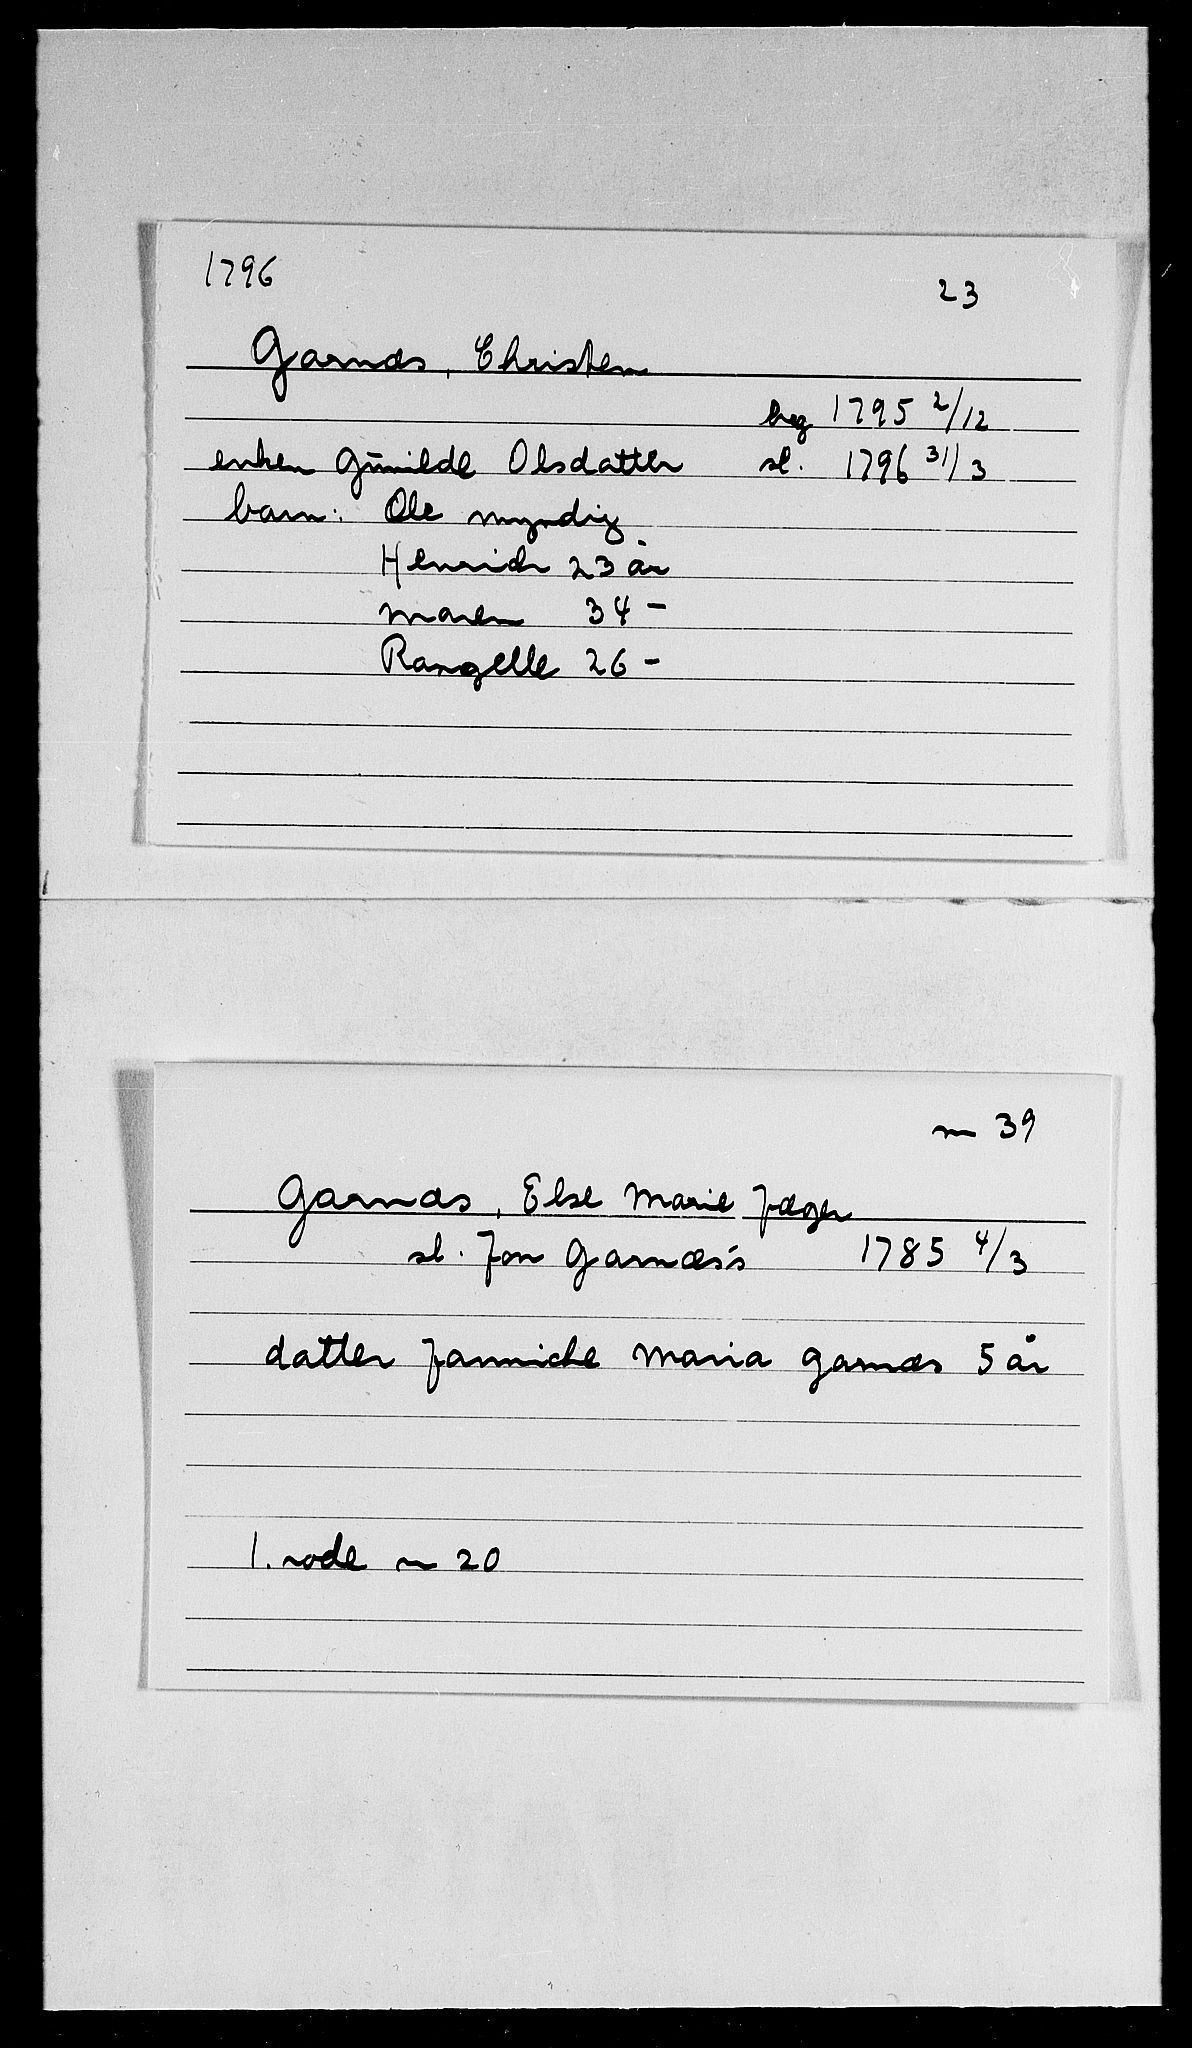 1796 23
Garnæs, Christen
beg 1795 2/12
enken Gunnilde Olsdatter sl. 1796 31/3
barn: Ole myndig
Henrich 23 år
Maren 34 -
Rangelle 26 -
m 39
Garnæs, Else Marie Jæger
sl. Jon Garnæs's 1785 4/3
datter Janniche Maria Garnæs 5 år
1. rode m 20